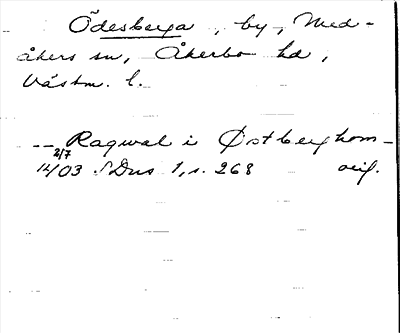 Ödesberga, by, Med-
åkers sn, Åkerbo hd,
Västm. l.
-- Ragwal i Østberghom -
2/7
1403 SDns 1, s. 268 orig.